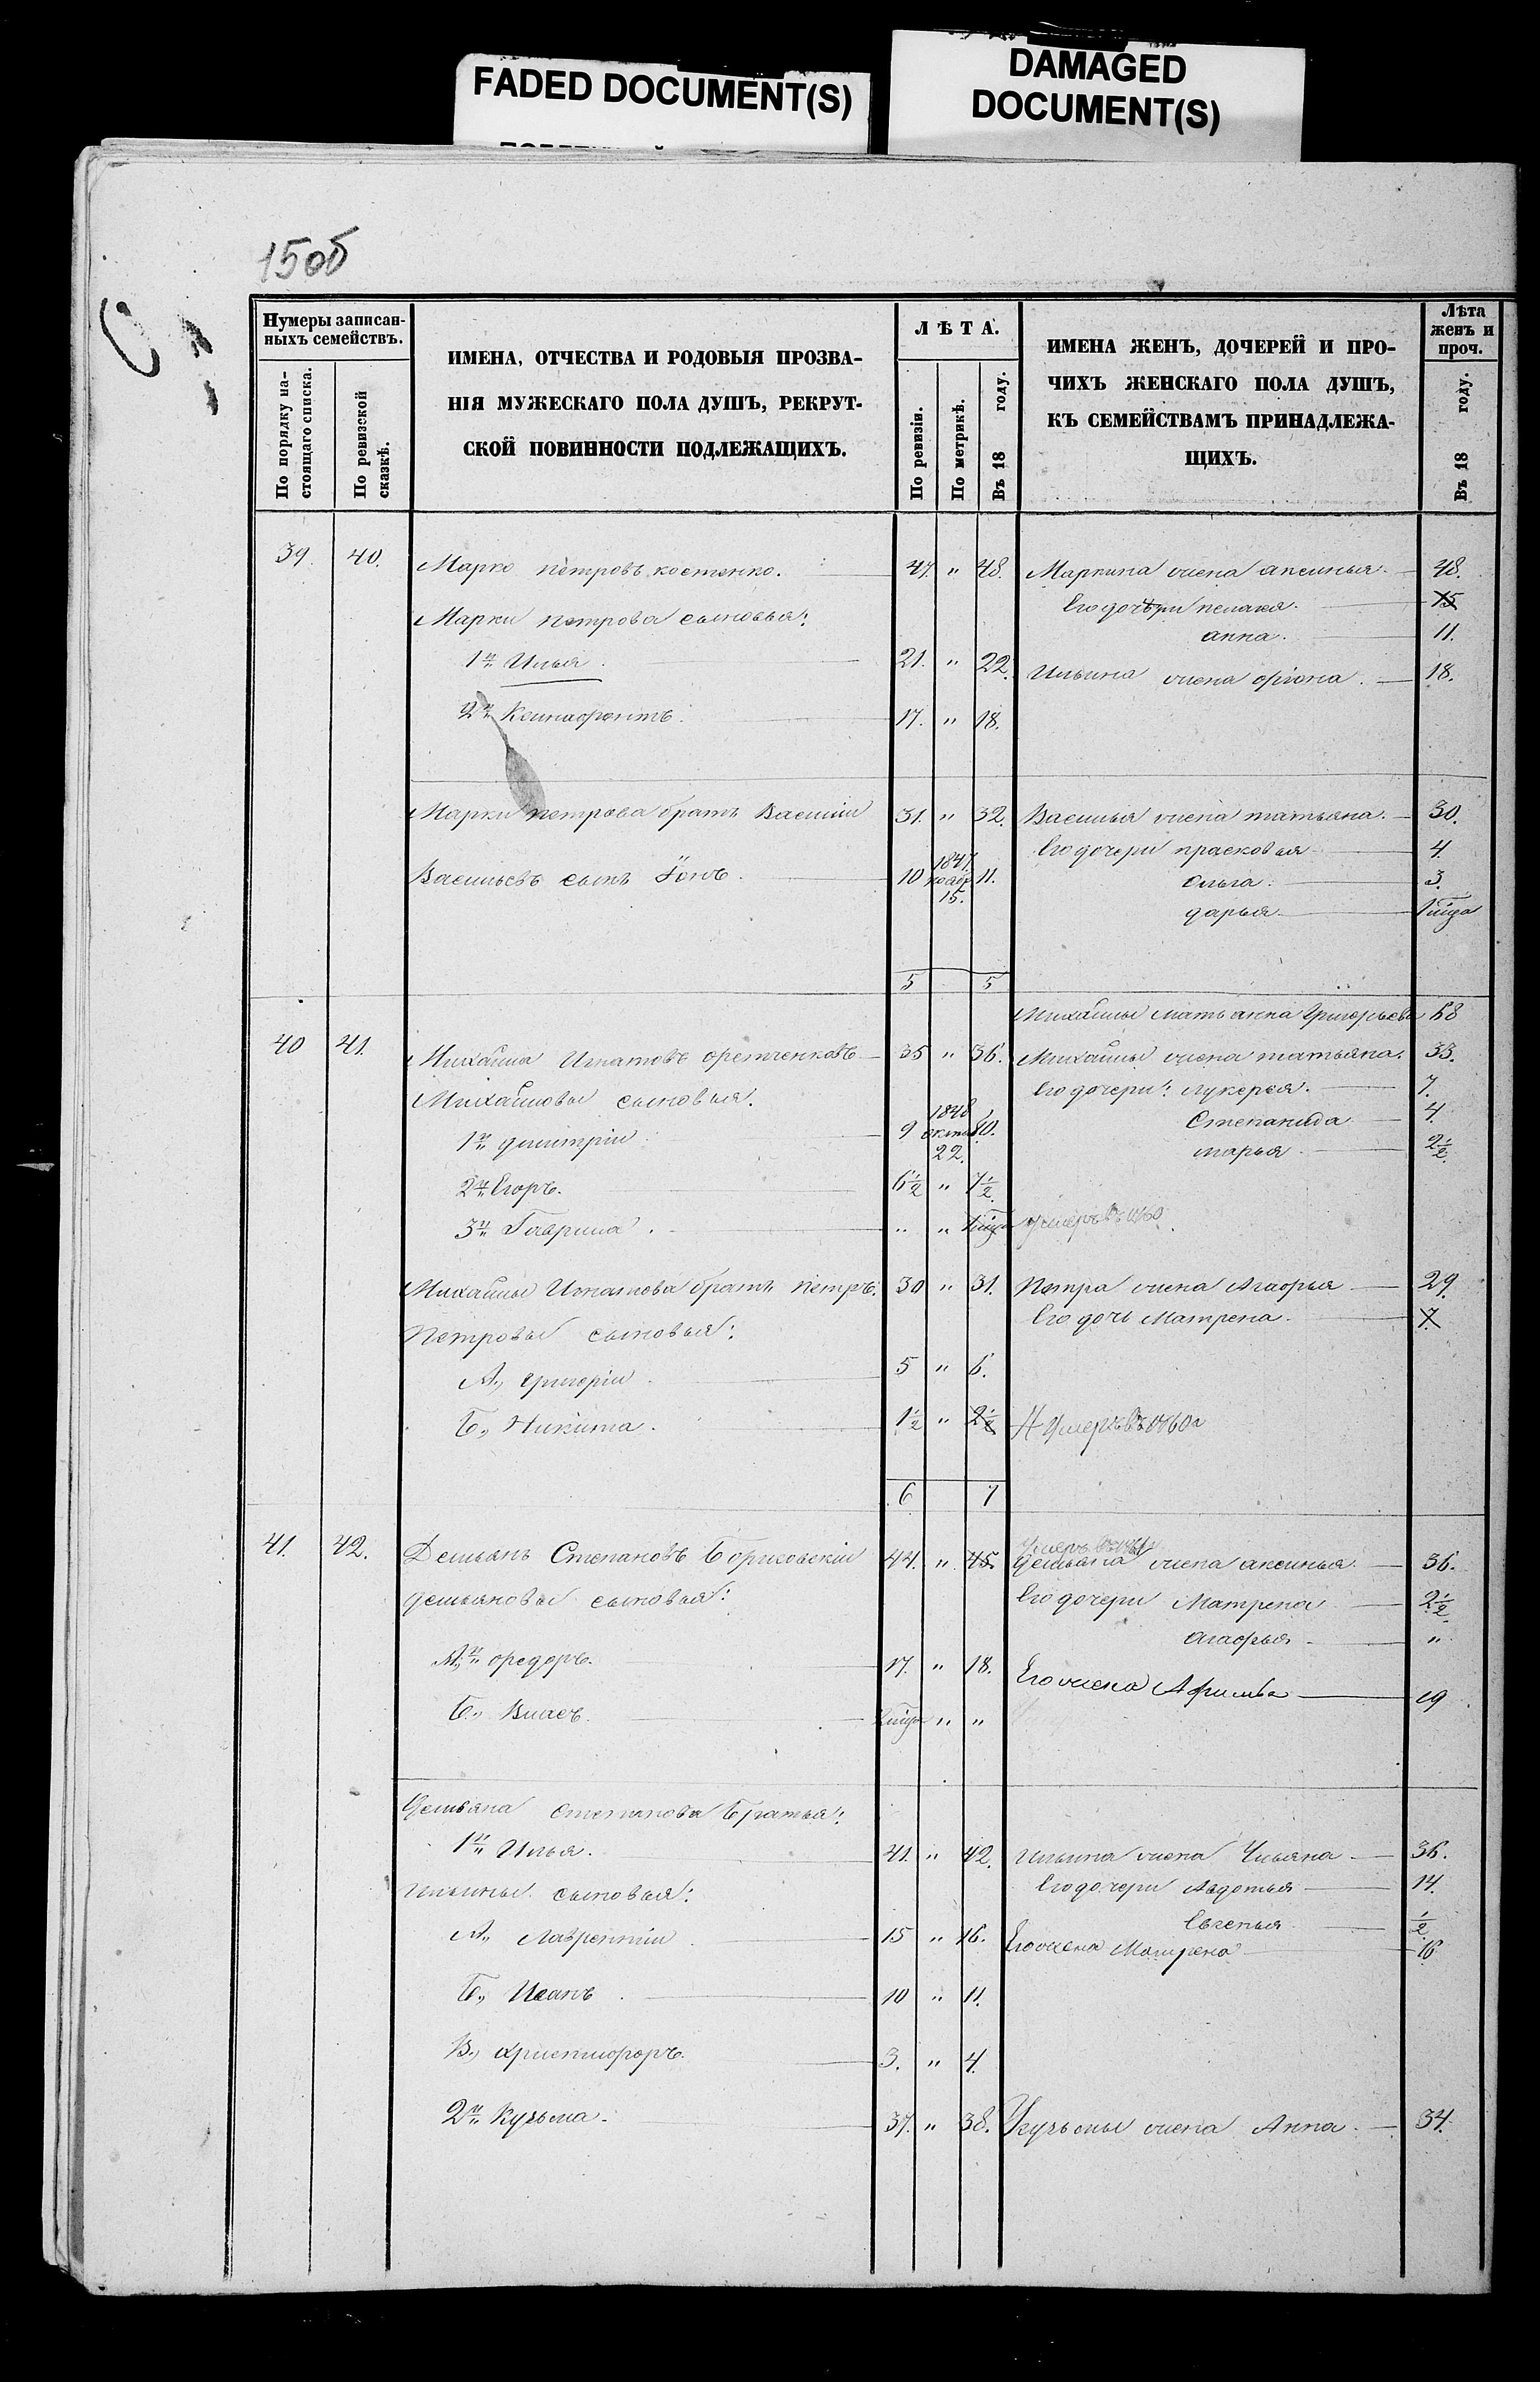 FADED DOCUMENT(S)
DAMAGED
DOCUMENT(S)
15об
Нумеры записан-
ныхъ семействъ.
По порядку на-
стоящаго списка.
По ревизской
сказкѣ.
ИМЕНА, ОТЧЕСТВА И РОДОВЫЯ ПРОЗВА-
НІЯ МУЖЕСКАГО ПОЛА ДУШЪ, РЕКРУТ-
СКОЙ ПОВИННОСТИ ПОДЛЕЖАЩИХЪ.
ЛѢТА.
По ревизіи.
По метрикѣ.
Въ 18 году.
ИМЕНА ЖЕНЪ, ДОЧЕРЕЙ И ПРО-
ЧИХЪ ЖЕНСКАГО ПОЛА ДУШЪ,
КЪ СЕМЕЙСТВАМЪ ПРИНАДЛЕЖА-
ЩИХЪ.
Лѣта
женъ и
проч.
Въ 18 году.
39. 40. Марко петровъ костенко. 47. " 48. Маркина жена аксинья. 48.
Его дочери пелагея. 15
Марки петрова сыновья:
анна. 11.
1й Илья. 21. " 22. Ильина жена фіона. 18.
2й Ксинофонтъ. 17. " 18.
Марки петрова братъ Василій 31. " 32. Василья жена татьяна. 30.
Его дочери прасковья 4.
Васильевъ сынъ Іонъ. 10 1847 нояб 15. 11. Ольга. 3.
дарья. 1 мѣся
5 5
Михайлы мать анна Григорьева 68
40 41. Михайла Игнатовъ фетченковъ 35 " 36. Михайлы жена татьяна. 33.
Михайловы сыновья. Его дочери: лукерья. 7.
Степанида 4.
1й дмитрій 9 1848 октяб 22. 10. марья 2½
2й Егоръ. 6½ " 7½
3й Гаврила. " " умеръ въ 1860
Михайлы Игнатова братъ петръ. 30 " 31. Петра жена Агафья 29.
Его дочь Матрена. 7.
Петровы сыновья:
А., григорій 5 " 6.
Б., Никита. 1½ " 2½ умеръ въ 1860 г
6 7
умеръ въ
41. 42. Демьянъ Степановъ Борисовскій 44. " 45. демьяна жена аксинья. 36.
демьяновы сыновья: Его дочери Матрена 2½
агафья "
А., й федоръ. 17. " 18. Его жена 19
Б., Власъ. " "
Демьяна степанова братья:
1й Илья. 41. " 42. Ильина жена Ульяна 36.
Ильины сыновья: Его дочери Авдотья 14.
Евгенья ½
А., Лаврентій 15 " 16. Его жена Матрена 16
Б., Иванъ 10 " 11.
В., христофоръ. 3. " 4.
2й Кузьма. 37. " 38. Кузьмы жена Анна. 34.